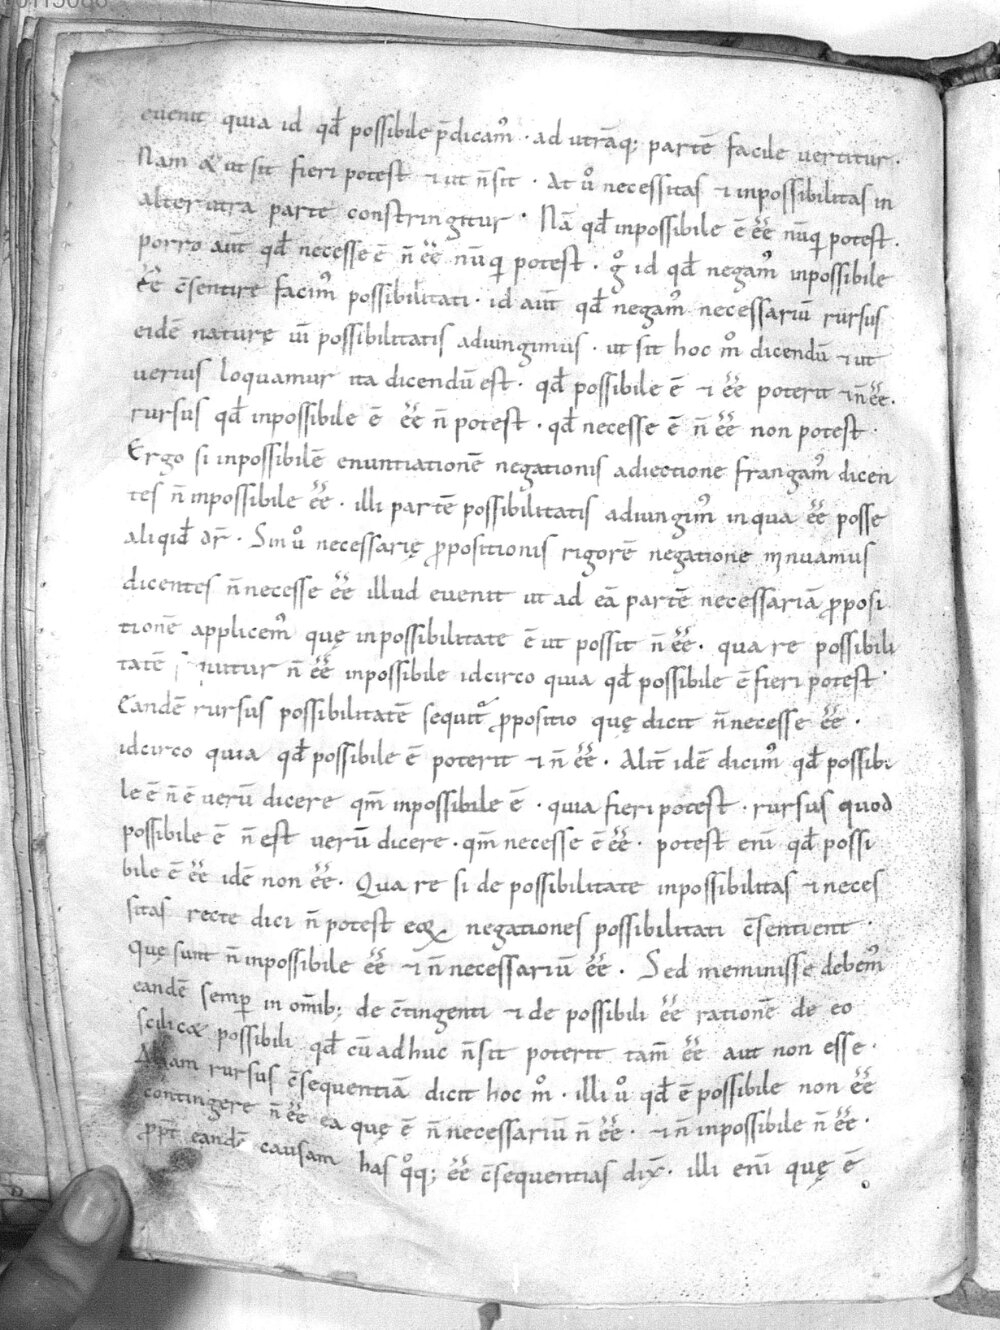 euenit quia id qđ possibile p̄dicam᷒ · ad utrāq; partē facile uertitur ·
Nam & ut sit fieri potest ⁊ ut n̄ sit · At u̇ necessitas ⁊ inpossibilitas in
alterutra parte constringitur · Nā qđ inpossibile ē ēē nūq̇ potest ·
porro aut̄ qđ necesse ē n̄ ēē nūq̇ potest · g̊ id qđ negam᷒ inpossibile
ēē c̄sentire facim᷒ possibilitati · id aut̄ qđ negam᷒ necessariū rursus
eidē naturę uī possibilitatis adiungimus · ut sit hoc m̊ dicendū ⁊ ut
uerius loquamur ita dicendū est · qđ possibile ē ⁊ ēē poterit ⁊ n̄ ēē ·
rursus qđ inpossibile ē ēē n̄ potest · qđ necesse ē n̄ ēē non potest ·
Ergo si inpossibilē enuntiationē negationis adiectione frangam᷒ dicen
tes n̄ inpossibile ēē · illi partē possibilitatis adiungim᷒ in qua ēē posse
aliqid dr̄ · Sin u̇ necessarię ꝓpositionis rigorē negatione minuamus
dicentes n̄ necesse ēē illud euenit ut ad eā partē necessariā ꝓposi
tionē applicem᷒ quę inpossibilitate ē ut possit n̄ ēē · qua re possibili
tatē n̄ ēē inpossibile idcirco quia qđ possibile ē fieri potest ·
Eandē rursus possibilitatē sequit᷑ ꝓpositio quę dicit n̄ necesse ēē ·
idcirco quia qđ possibile ē poterit ⁊ n̄ ēē · Alit̄ idē dicim᷒ qđ possibi
le ē n̄ ē uerū dicere qm̄ inpossibile ē · quia fieri potest · rursus quod
possibile ē n̄ est uerū dicere · qm̄ necesse ē ēē · potest eni̅ qđ possi
bile ē ēē idē non ēē · Qua re si de possibilitate inpossibilitas ⁊ neces
sitas recte dici n̄ potest eoꝝ negationes possibilitati c̄sentient ·
quę sunt n̄ inpossibile ēē ⁊ n̄ necessariū ēē · Sed meminisse debem᷒
eandē semp̄ in om̄ib; de c̄tingenti ⁊ de possibili ēē rationē de eo
scilic& possibili qđ cū adhuc n̄ sit poterit tam̄ ēē aut non esse ·
Aliam rursus c̄sequentiā dicit hoc m̊ · illi u̇ qđ ē possibile non ēē
contingere n̄ ēē ea quę ē n̄ necessariū n̄ ēē · ⁊ n̄ inpossibile n̄ ēē ·
ꝓpt̄ eandē causam has q̊q; ēē c̄sequentias dix̄ · illi eni̅ quę ē